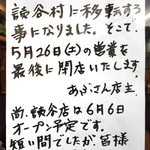 読谷村に移転する
事になりました。そこで、
5月26日(土)の営業を
最後に閉店いたします。
あぶさん店主
尚、読谷店は6月6日
オープン予定です。
短い間でしたが、皆様